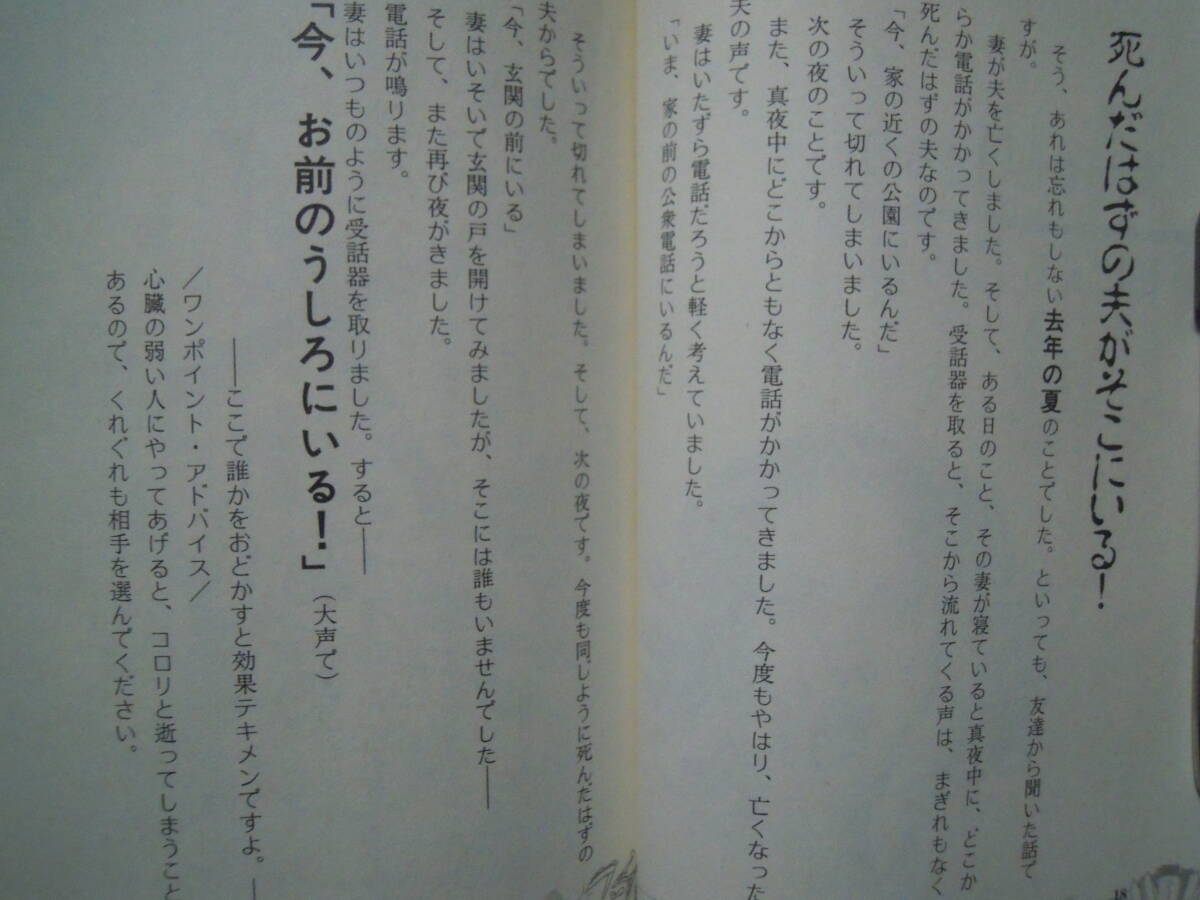 死んだはずの夫がそこにいる!
そう、あれは忘れもしない去年の夏のことでした。といっても、友達から聞いた話で
すが。
妻が夫を亡くしました。そして、ある日のこと、その妻が寝ていると真夜中に、どこか
らか電話がかかってきました。受話器を取ると、そこから流れてくる声は、まぎれもなく
死んだはずの夫なのです。
「今、家の近くの公園にいるんだ」
そういって切れてしまいました。
次の夜のことです。
また、真夜中にどこからともなく電話がかかってきました。今度もやはり、亡くなった
夫の声です。
妻はいたずら電話だろうと軽く考えていました。
「いま、家の前の公衆電話にいるんだ」
18
そういって切れてしまいました。そして、次の夜です。今度も同じように死んだはずの
夫からでした。
「今、玄関の前にいる」
妻はいそいで玄関の戸を開けてみましたが、そこには誰もいませんでした――
そして、また再び夜がきました。
電話が鳴ります。
妻はいつものように受話器を取りました。すると――
「今、お前のうしろにいる!」(大声で)
――ここで誰かをおどかすと効果テキメンですよ。―
/ワンポイント・アドバイス/
心臓の弱い人にやってあげると、コロリと逝ってしまうこと
あるので、くれぐれも相手を選んでください。